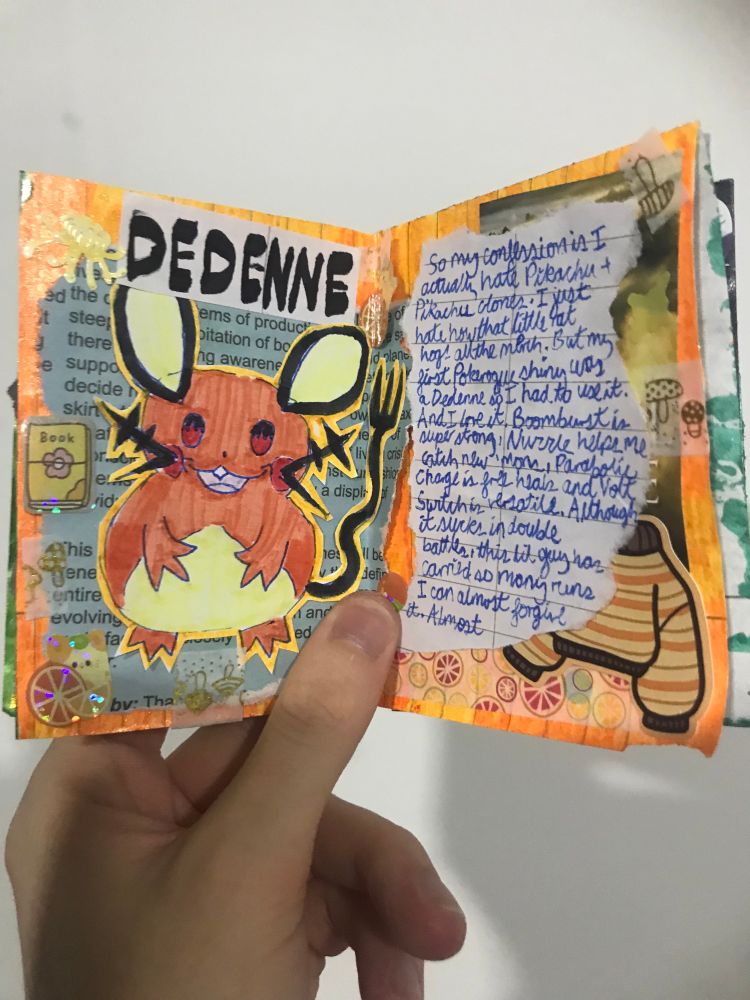 DEDENNE
the c
ems of product
steep
pitation of bo
there
ng awarene
suppo
decide r
skin
a display of
Book
This
entire
evolving
by: Tha
So my confession is I
actually hate Pikachu +
Pikachu clones. I just
hate how that little rat
hogs all the merch. But my
first Pokerogue shiny was
a Dedenne so I had to use it.
And I love it. Boomburst is
super strong, Nuzzle helps me
catch new 'mons, Parabolic
Charge is free heals and Volt
Switch is versatile. Although
it sucks in double
battles, this lil guy has
carried so many runs
I can almost forgive
it. Almost